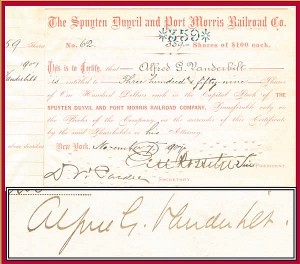 The Spuyten Duyvil and Port Morris Railroad Co.
359
59 Shares No. 62 359 Shares of $100 each.
1907 This is to Certify, that Alfred G. Vanderbilt
Vanderbilt is entitled to Three hundred & fifty nine Shares
of One Hundred Dollars each in the Capital Stock of THE
SPUYTEN DUYVIL AND PORT MORRIS RAILROAD COMPANY, Transferable only on
the Books of the Company on the surrender of this Certificate
by the said Shareholder or his Attorney.
New York, November 1907
PRESIDENT.
SECRETARY.
Alfred G. Vanderbilt.